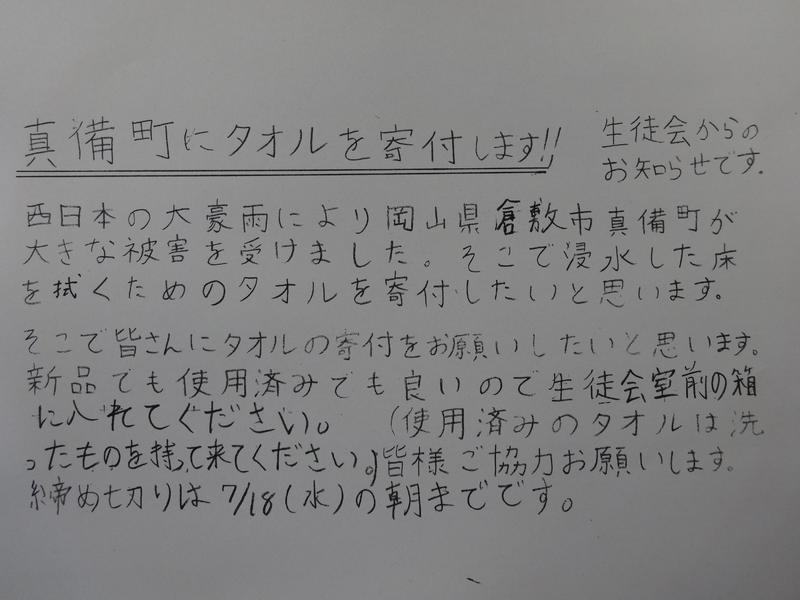 真備町にタオルを寄付します!!
生徒会からの
お知らせです.
西日本の大豪雨により岡山県倉敷市真備町が
大きな被害を受けました。そこで浸水した床
を拭くためのタオルを寄付したいと思います。
そこで皆さんにタオルの寄付をお願いしたいと思います。
新品でも使用済みでも良いので生徒会室前の箱
に入れてください。 (使用済みのタオルは洗
ったものを持って来てください。)皆様ご協力お願いします。
締め切りは7/18(水)の朝までです。